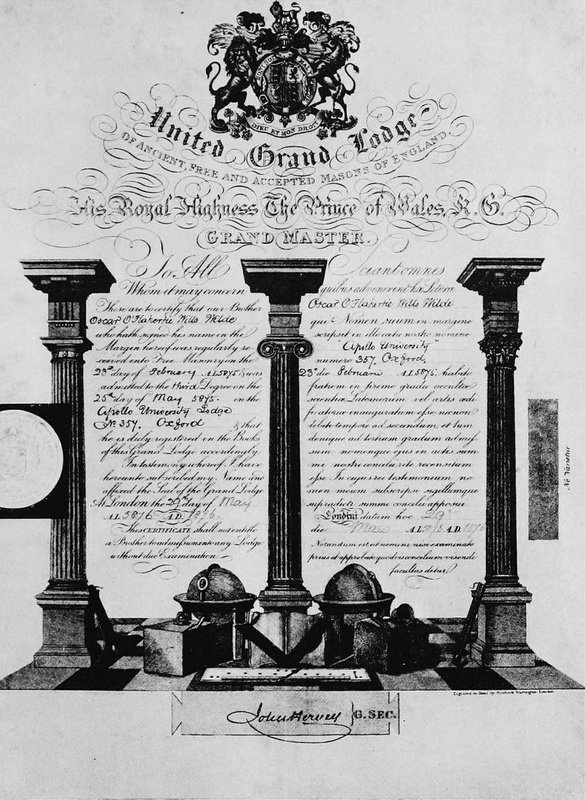 DIEU ET MON DROIT
United Grand Lodge
OF ANCIENT, FREE AND ACCEPTED MASONS OF ENGLAND.
His Royal Highness The Prince of Wales, K. G.
GRAND MASTER.
To All
Whom it may concern
These are to certify that our Brother
Oscar O'Flahertie Wills Wilde
who hath signed his name in the
Margin hereof was regularly re
ceived into Free Masonry on the
23rd day of February A.L. 5875 & was
admitted to the third Degree on the
25th day of May 5875. in the
Apollo University Lodge
No. 357. Oxford & that
he is duly registered in the Books
of this Grand Lodge accordingly.
In testimony whereof I have
hereunto subscribed my Name and
affixed the Seal of the Grand Lodge
At London the day of May
A.L. 5876 A.D. 1876.
This CERTIFICATE shall not entitle
a Brother to admission into any Lodge
without due Examination
Sciant omnes
quibus advenerent hæ Literæ
Oscar O'Flahertie Wills Wilde
qui Nomen suum in margine
scripsit in illo coetu nostro nomine
"Apollo University"
numero 357. Oxford,
23 die Februarii A.L. 5875. habito
fratrem in primo gradu occultæ
scientiæ Latomorum vel artis ædi
ficatoriæ inauguratum esse necnon
debito tempore ad secundum, et tum
denique ad tertium gradum admis
sum, nomenque ejus in actis sum
mi nostri concilii rite recensitum
esse. In cujus rei testimonium no
men meum subscripsi sigillumque
supradicti summi concilii apposui
Londini datum hoc
die Maii A.L. 5876 A.D. 1876
Notandum est ut nemini nisi examinato
prius et approbato quovis concilium visendi
facultas detur.
Ne Varietur
Engraved on Steel by London
John Hervey G. SEC.